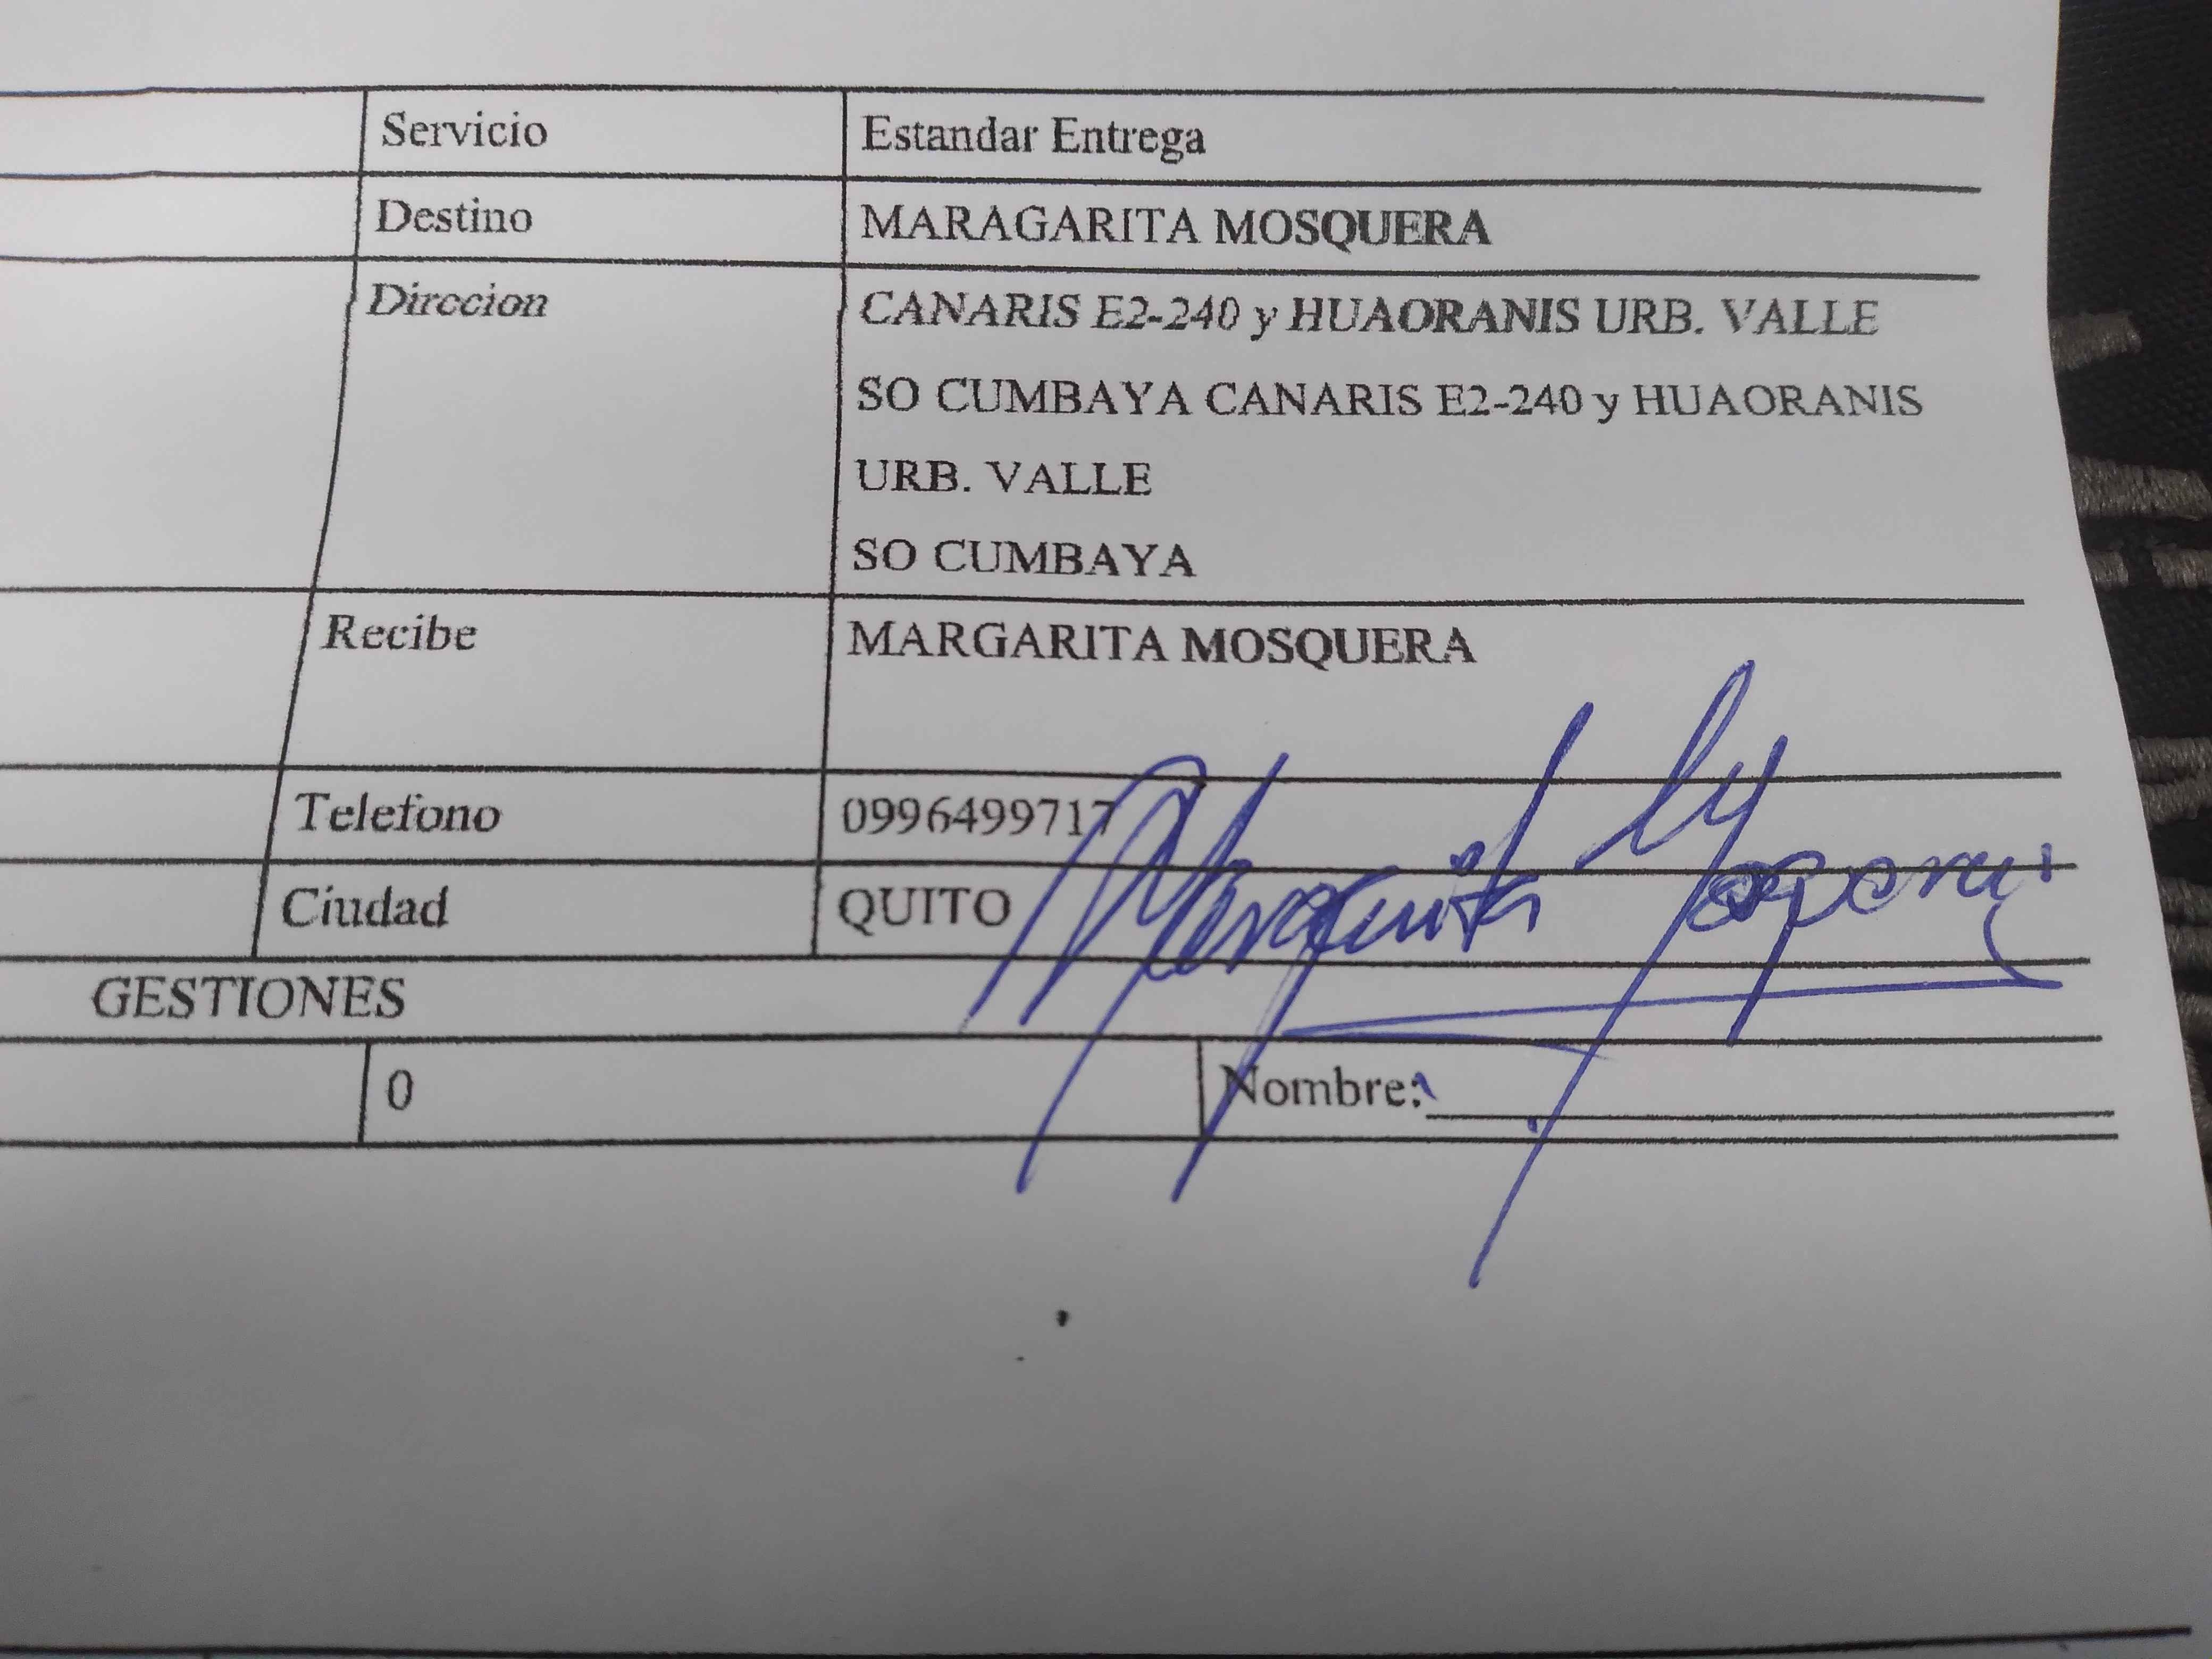 Servicio Estandar Entrega
Destino MARAGARITA MOSQUERA
Direccion CANARIS E2-240 y HUAORANIS URB. VALLE
SO CUMBAYA CANARIS E2-240 y HUAORANIS
URB. VALLE
SO CUMBAYA
Recibe MARGARITA MOSQUERA
Telefono 0996499717
Ciudad QUITO
Margarita
GESTIONES
0 Nombre: